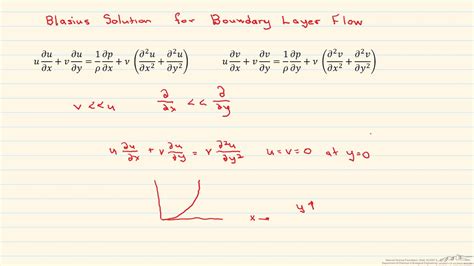 Blasius Solution for Boundary Layer Flow
u ∂u/∂x + v ∂u/∂y = 1/ρ ∂p/∂x + ν (∂²u/∂x² + ∂²u/∂y²) u ∂v/∂x + v ∂v/∂y = 1/ρ ∂p/∂y + ν (∂²v/∂x² + ∂²v/∂y²)
v << u ∂/∂x << ∂/∂y
u ∂u/∂x + v ∂u/∂y = ν ∂²u/∂y² u = v = 0 at y = 0
x → y ↑